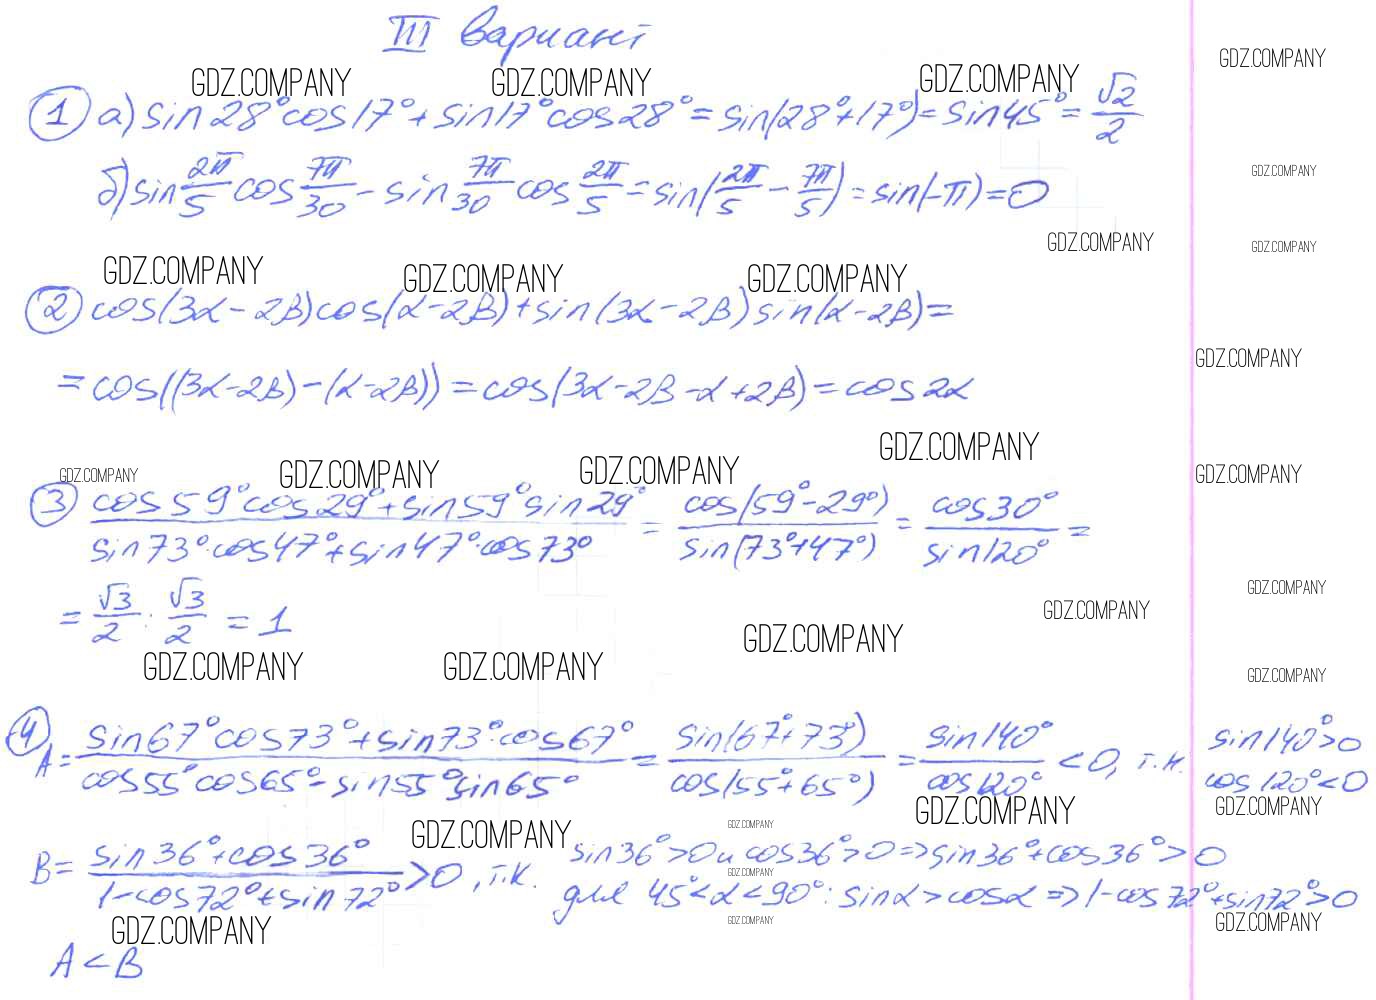 III вариант
GDZ.COMPANY GDZ.COMPANY GDZ.COMPANY GDZ.COMPANY
1 а) sin 28° cos 17° + sin 17° cos 28° = sin(28° + 17°) = sin 45° = √2/2
GDZ.COMPANY
б) sin 2π/5 cos 7π/30 - sin 7π/30 cos 2π/5 = sin(2π/5 - 7π/5) = sin(-π) = 0
GDZ.COMPANY GDZ.COMPANY
GDZ.COMPANY GDZ.COMPANY GDZ.COMPANY
2 cos(3α - 2β) cos(α - 2β) + sin(3α - 2β) sin(α - 2β) =
GDZ.COMPANY
= cos((3α - 2β) - (α - 2β)) = cos(3α - 2β - α + 2β) = cos 2α
GDZ.COMPANY GDZ.COMPANY GDZ.COMPANY GDZ.COMPANY GDZ.COMPANY
3 (cos 59° cos 29° + sin 59° sin 29°)/(sin 73° · cos 47° + sin 47° · cos 73°) = cos(59° - 29°)/sin(73° + 47°) = cos 30°/sin 120° =
GDZ.COMPANY
= √3/2 : √3/2 = 1
GDZ.COMPANY GDZ.COMPANY
GDZ.COMPANY GDZ.COMPANY GDZ.COMPANY
4 A = (sin 67° cos 73° + sin 73° · cos 67°)/(cos 55° cos 65° - sin 55° sin 65°) = sin(67° + 73°)/cos(55° + 65°) = sin 140°/cos 120° < 0, т.к. sin 140° > 0
cos 120° < 0
GDZ.COMPANY GDZ.COMPANY GDZ.COMPANY GDZ.COMPANY
B = (sin 36° + cos 36°)/(1 - cos 72° + sin 72°) > 0, т.к. sin 36° > 0 и cos 36° > 0 => sin 36° + cos 36° > 0
GDZ.COMPANY
для 45° < α < 90°: sin α > cos α => 1 - cos 72° + sin 72° > 0
GDZ.COMPANY GDZ.COMPANY GDZ.COMPANY
A < B